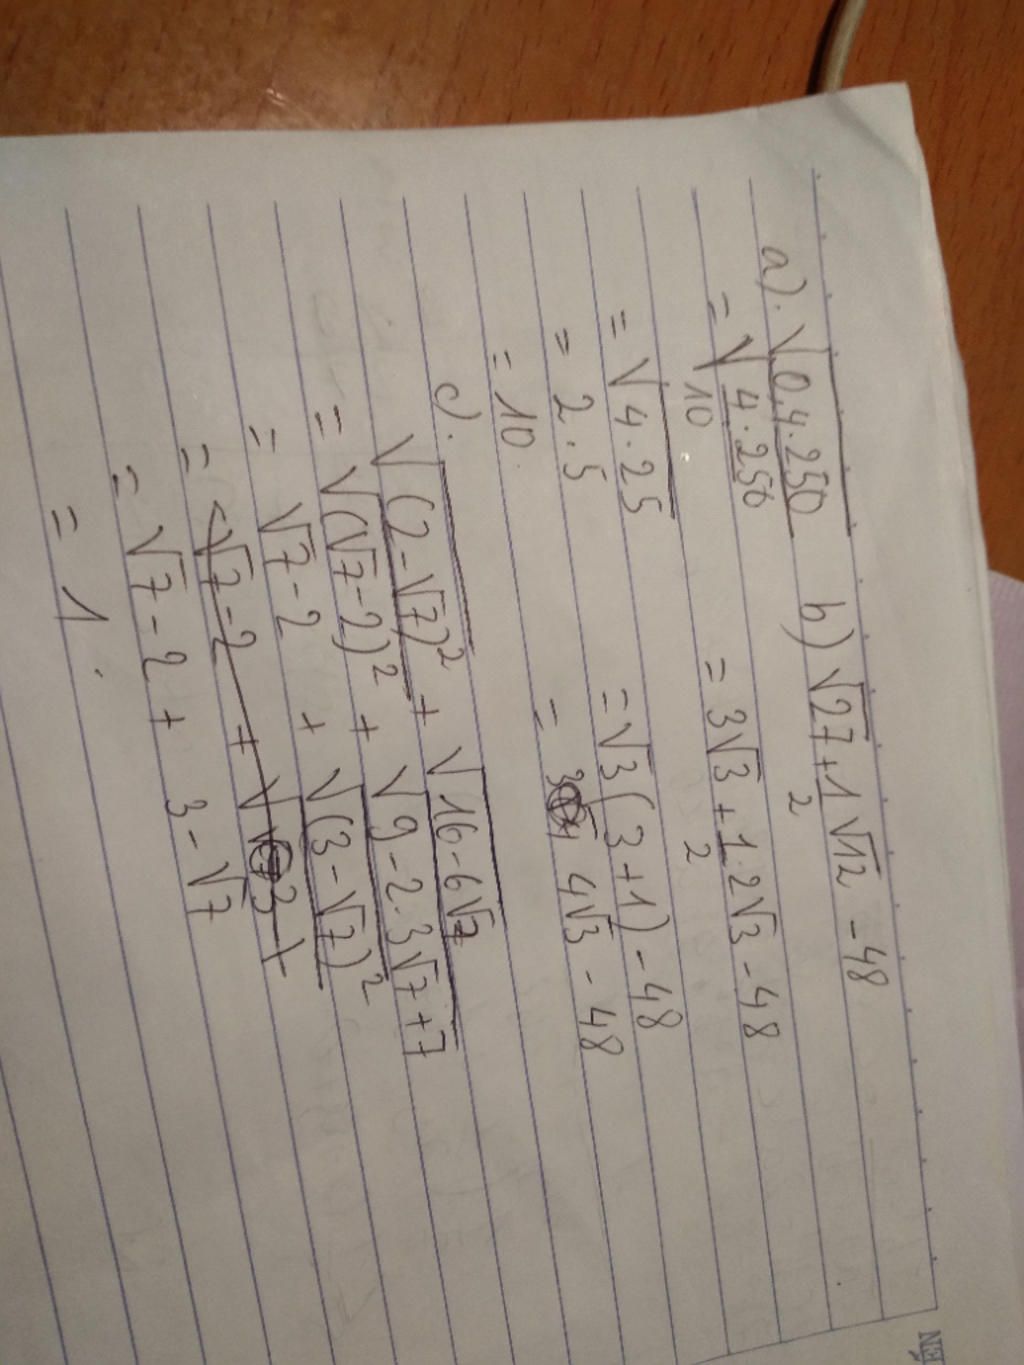 a). √0,4.250
= √4.250/10
= √4.25
= 2.5
= 10.
b) √27 + 1/2 √12 - 48
= 3√3 + 1/2 . 2√3 - 48
= √3(3+1) - 48
= 4√3 - 48
c). √(2-√7)² + √16-6√7
= √(√7-2)² + √9-2.3√7+7
= √7-2 + √(3-√7)²
= √7-2 +
= √7-2 + 3-√7
= 1.